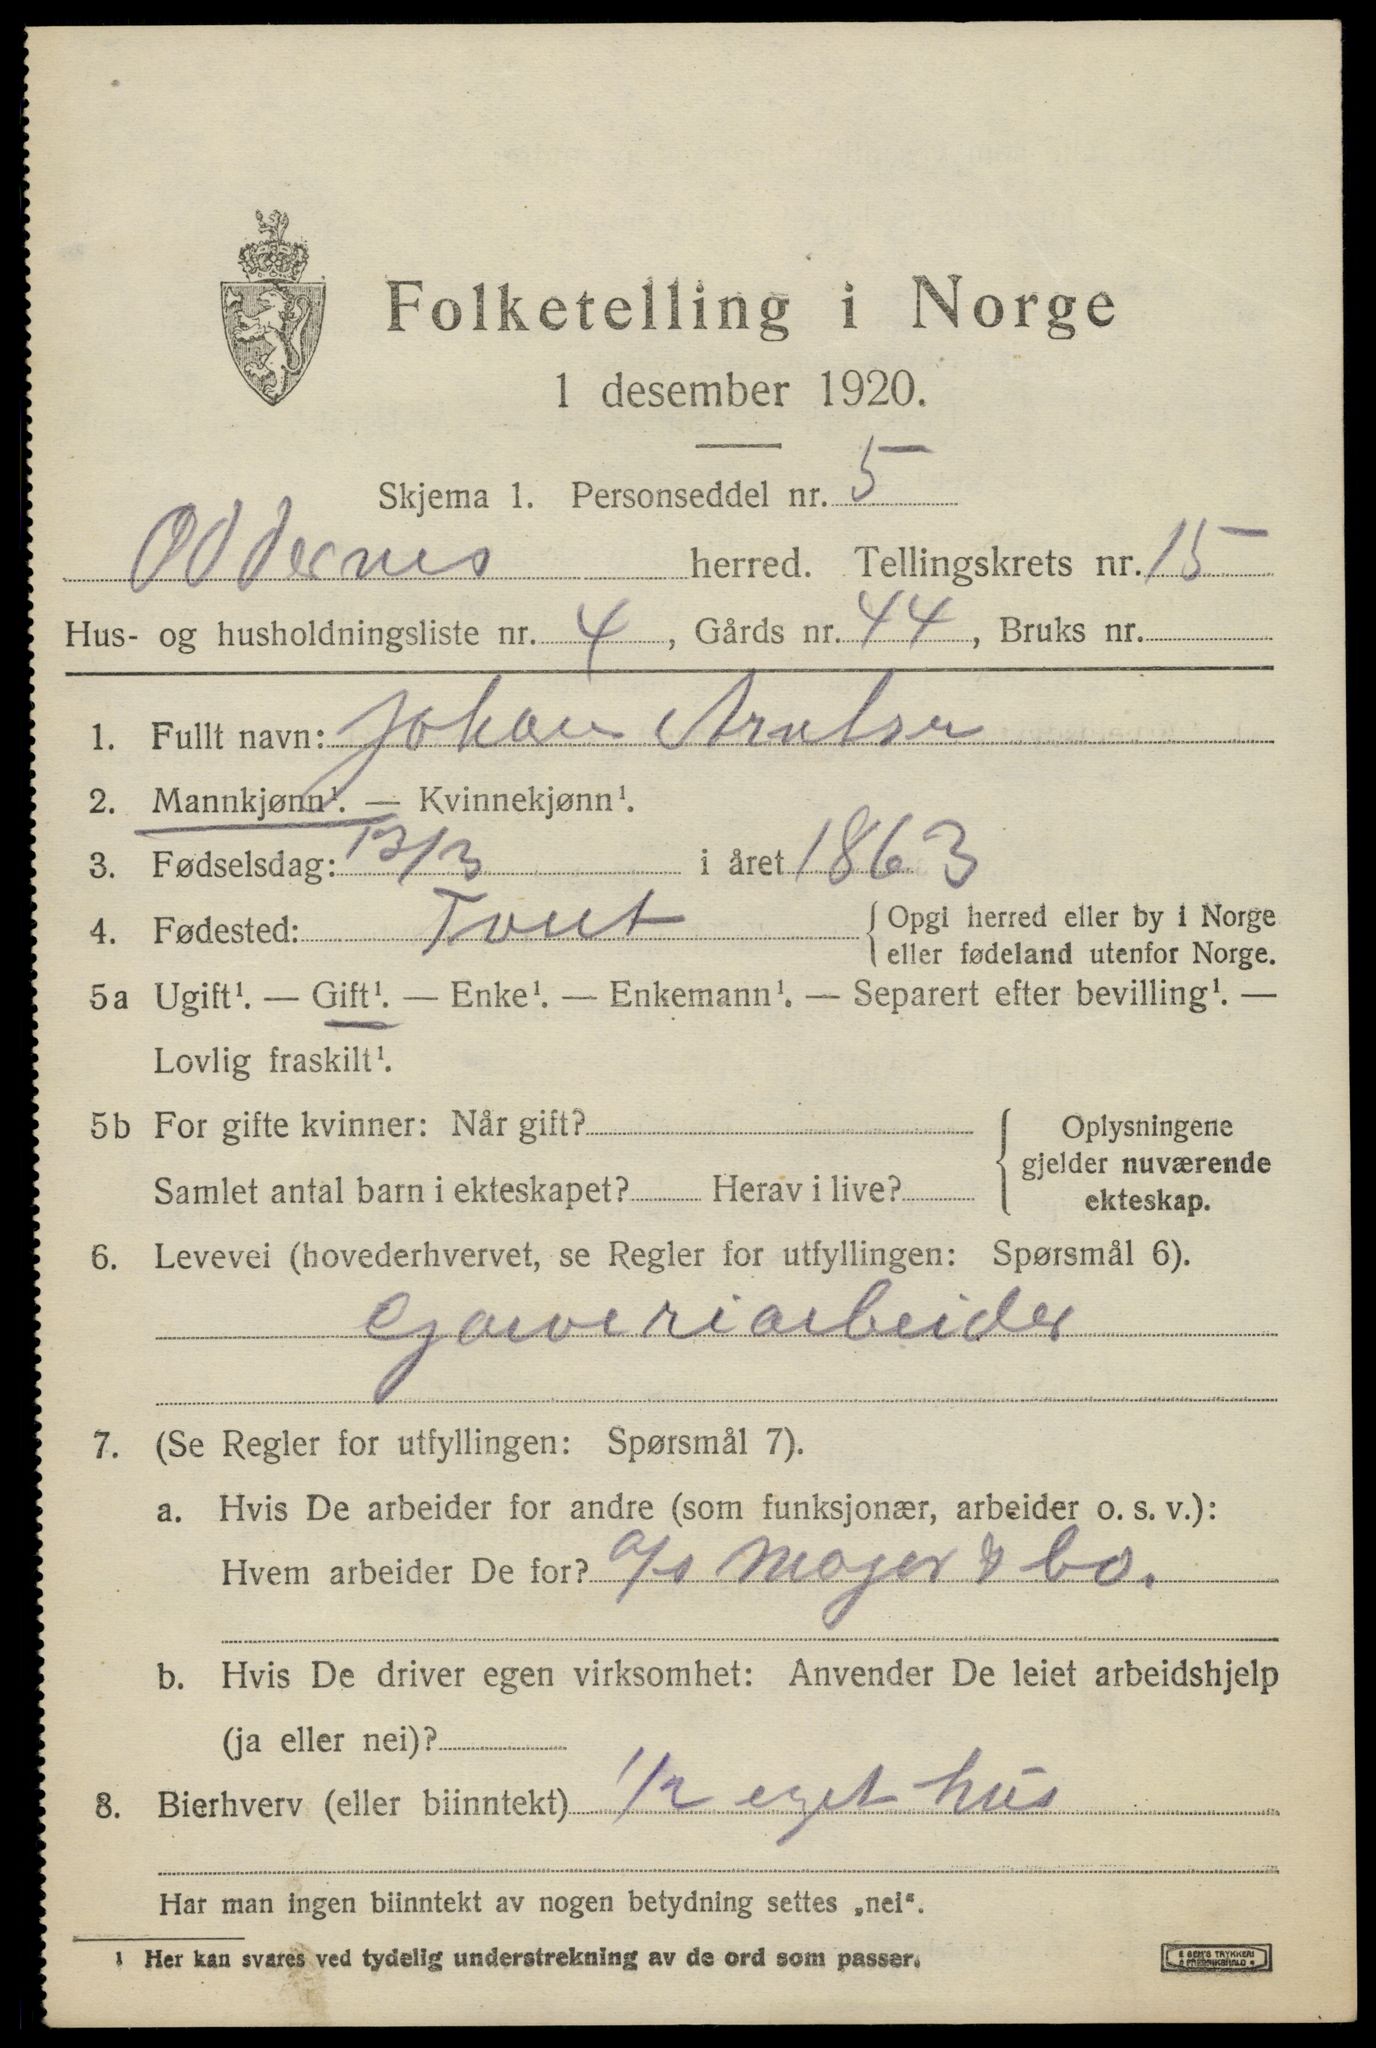 Folketelling i Norge
1 desember 1920.
Skjema 1. Personseddel nr. 5
Oddernes herred. Tellingskrets nr. 15
Hus- og husholdningsliste nr. 4, Gårds nr. 44, Bruks nr.
1. Fullt navn: Johan
2. Mannkjønn¹. — Kvinnekjønn¹.
3. Fødselsdag: 13/3 i året 1863
4. Fødested: Tveit { Opgi herred eller by i Norge
eller fødeland utenfor Norge.
5a Ugift¹. — Gift¹. — Enke¹. — Enkemann¹. — Separert efter bevilling¹. —
Lovlig fraskilt¹.
5b For gifte kvinner: Når gift?
Samlet antal barn i ekteskapet? Herav i live?
{ Oplysningene
gjelder nuværende
ekteskap.
6. Levevei (hovederhvervet, se Regler for utfyllingen: Spørsmål 6).
Garveriarbeider
7. (Se Regler for utfyllingen: Spørsmål 7).
a. Hvis De arbeider for andre (som funksjonær, arbeider o. s. v.):
Hvem arbeider De for? A/s & Co.
b. Hvis De driver egen virksomhet: Anvender De leiet arbeidshjelp
(ja eller nei)?
8. Bierhverv (eller biinntekt) 1/2 eget hus
Har man ingen biinntekt av nogen betydning settes „nei“.
¹ Her kan svares ved tydelig understrekning av de ord som passer.